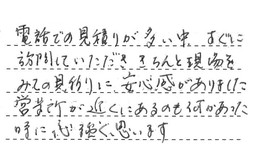 電話での見積りが多い中、すぐに
訪問していただき きちんと現場を
みての見積りに安心感がありました
営業所が近くにあるのも何かあった
時に心強く思います